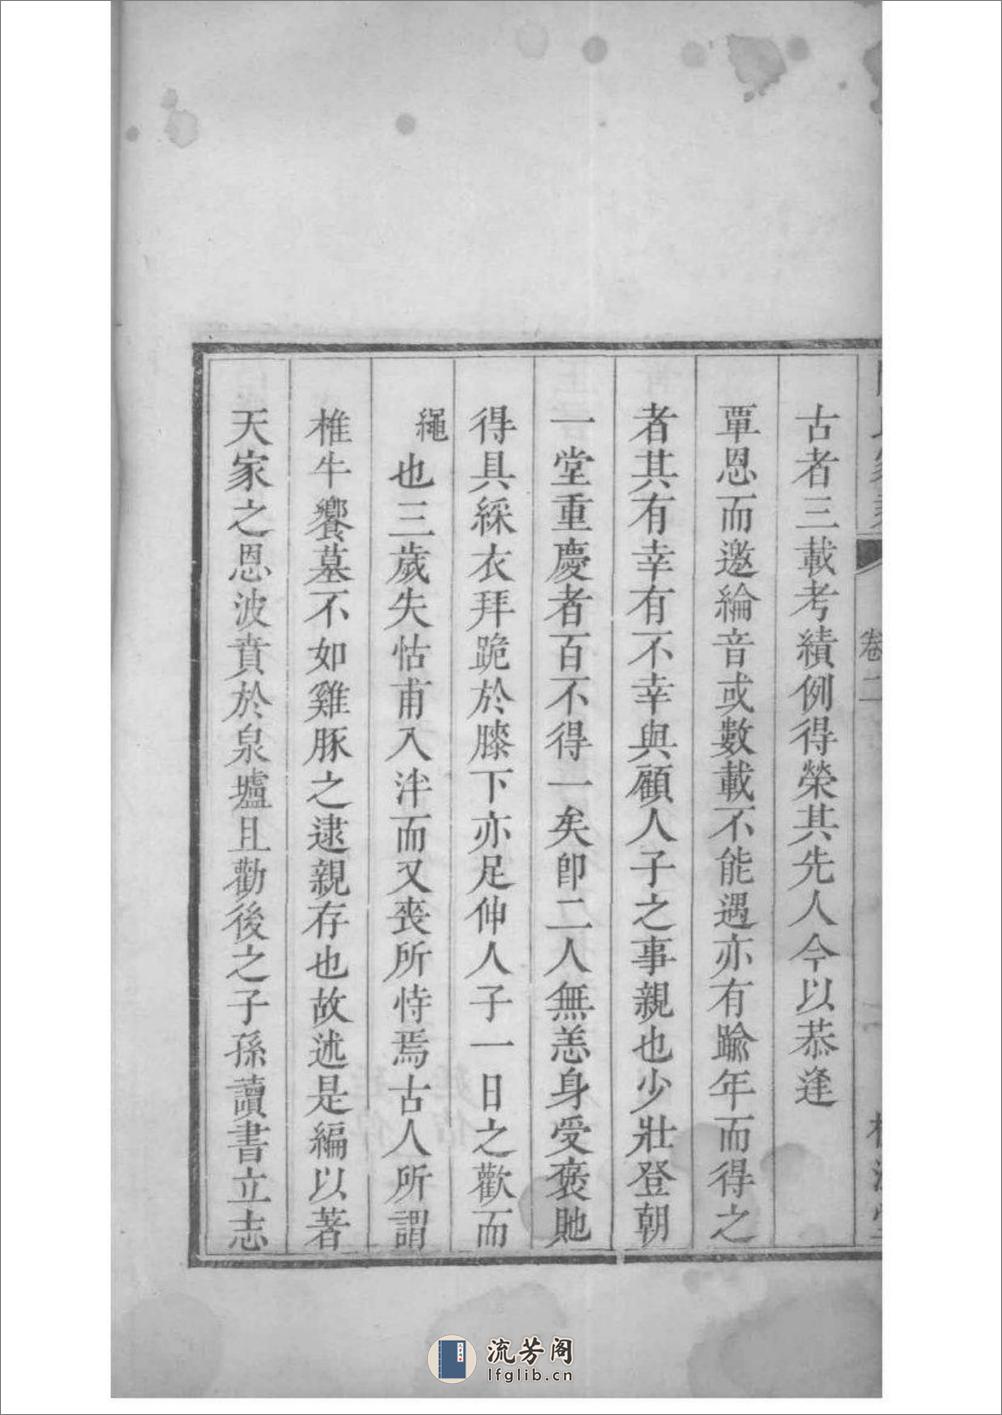 卷二
古者三載考績例得榮其先人今以恭逢
覃恩而邀綸音或數載不能遇亦有踰年而得之
者其有幸有不幸與顧人子之事親也少壯登朝
一堂重慶者百不得一矣卽二人無恙身受褒貤
得具綵衣拜跪於膝下亦足伸人子一日之歡而
繩也三歲失怙甫入泮而又喪所恃焉古人所謂
椎牛饗墓不如雞豚之逮親存也故述是編以著
天家之恩波賁於泉壚且勸後之子孫讀書立志
流芳阁
lfglib.cn